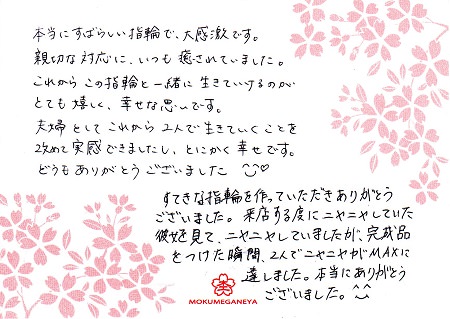 本当にすばらしい指輪で、大感激です。
親切な対応に、いつも癒されていました。
これからこの指輪と一緒に生きていけるのが
とても嬉しく、幸せな思いです。
夫婦としてこれから2人で生きていくことを
改めて実感できましたし、とにかく幸せです。
どうもありがとうございました
すてきな指輪を作っていただきありがとう
ございました。来店する度にニヤニヤしていた
彼女を見て、ニヤニヤしていましたが、完成品
をつけた瞬間、2人でニヤニヤがMAXに
達しました。本当にありがとう
ございました。^^
MOKUMEGANEYA